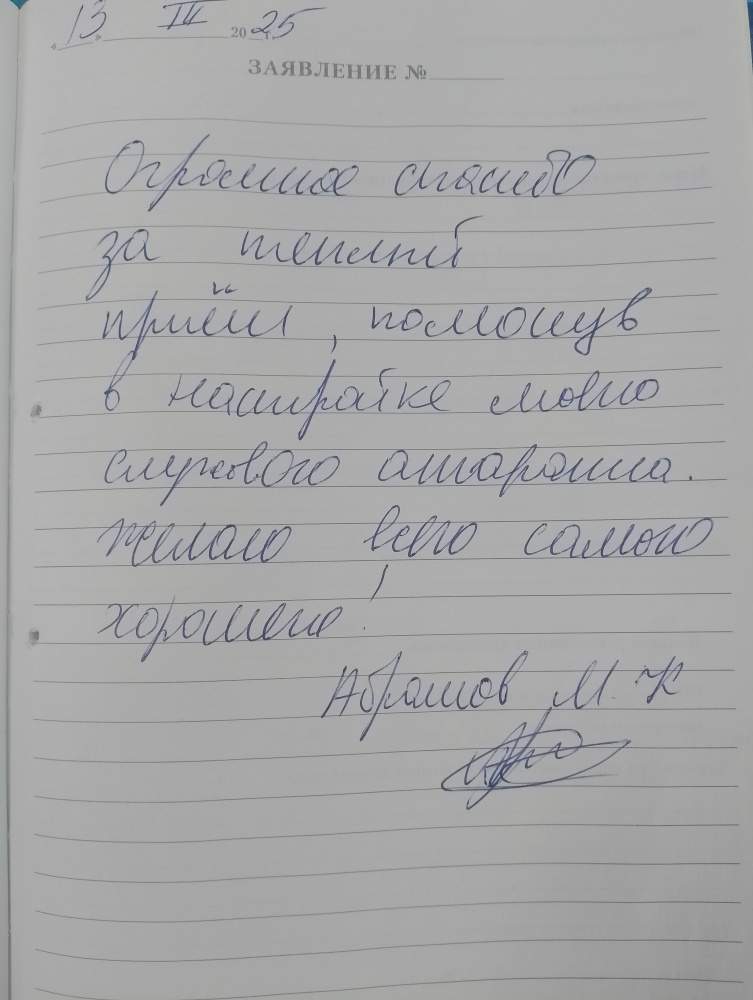 « 13 » III 20 25 г.
ЗАЯВЛЕНИЕ №
Огромное спасибо
за теплый
приём, помощь
в настройке моего
слухового аппарата.
Желаю всего самого
хорошего!
Абрамов М. К